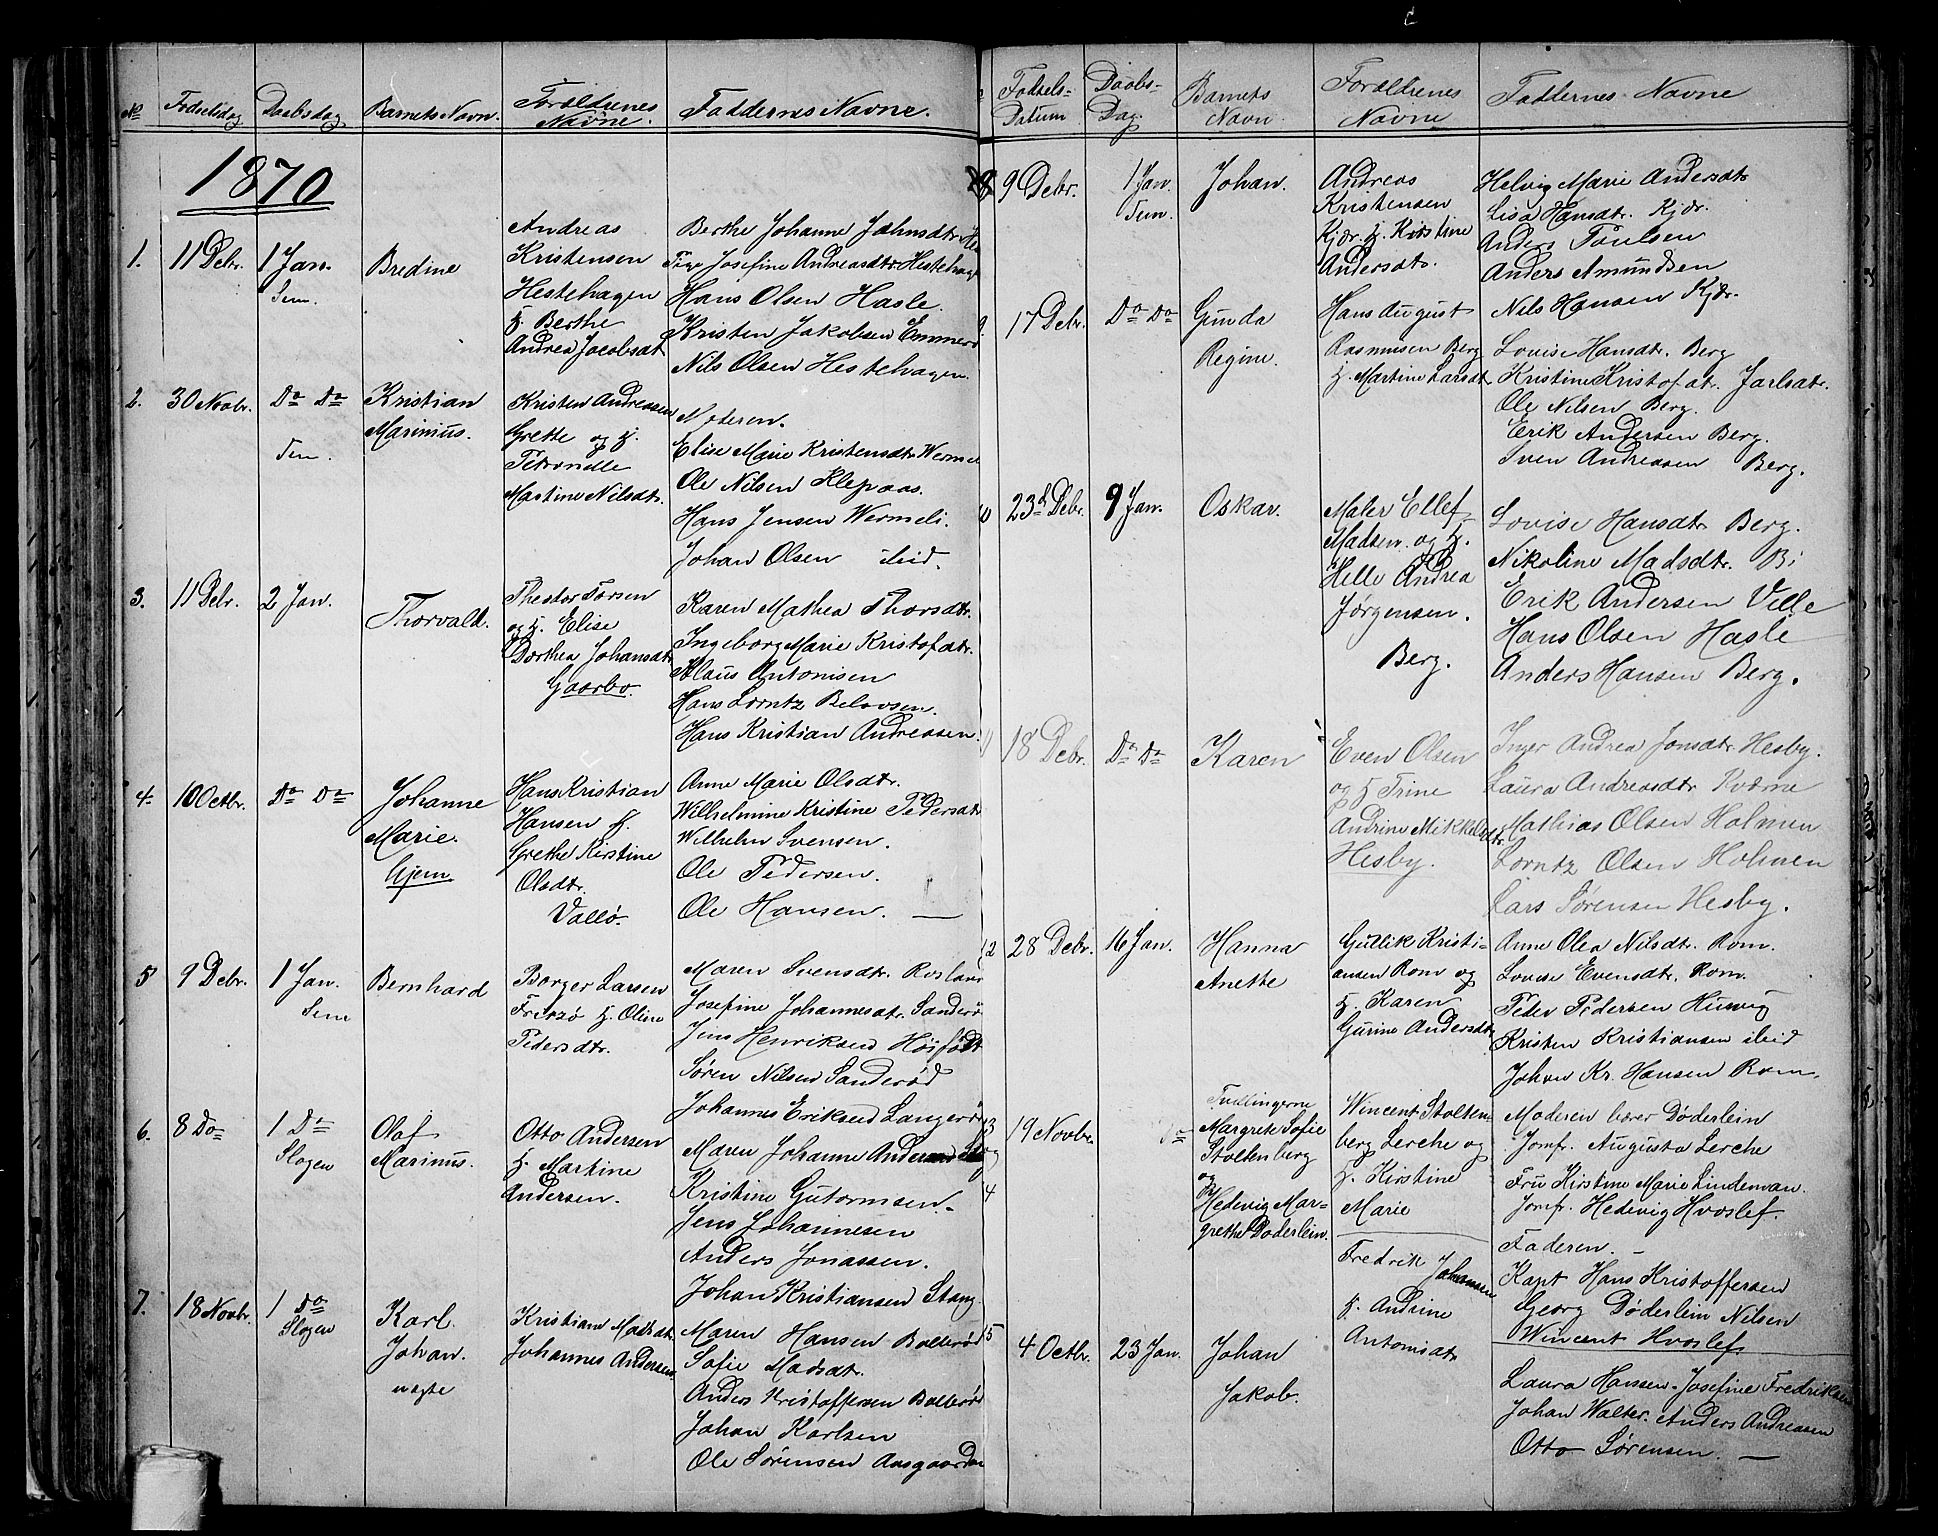 No Fødselsdag Daabsdag Barnets Navn. Forældrenes Navne. Faddernes Navne.
1870
1. 11 Debr. 1 Jan. Sem. Bredine
Andreas
Kristensen
Hestehagen
H. Berthe
Andrea Jacobsdt
Berthe Johanne Johnsdtr
Josefine Andreasdtr Hestehage
Hans Olsen Hasle.
Kristen Jakobsen
Nils Olsen Hestehagen.
2. 30 Novbr. Do Do Sem. Kristian
Marinius.
Kristen Andreasen
Grette og H.
Petronelle
Martine Nilsdtr.
Moderen.
Elise Marie Kristensdtr
Ole Nilsen Klepaas.
Hans Jensen Wermeli.
Johan Olsen ibid.
3. 11 Debr. 2 Jan. Thorvald.
Thestor Torsen
og H. Elise
Dorthea Johansdt
Gaarbo.
Karen Mathea Thorsdtr.
Ingeborg Marie Kristofdtr.
Klaus Antonisen
Hans Lorntz
Hans Kristian Andreasen.
4. 10 Octbr. Do Do Johanne
Marie.
hjem
Hans Kristian
Hansen H.
Grethe Kirstine
Olsdtr.
Vallø.
Anne Marie Olsdtr.
Wilhelmine Kristine Pedersdt
Wilhelm Svensen.
Ole Pedersen.
Ole Hansen.
5 9 Debr. 1 Jan. Sem Bernhard
Borger Larsen
H. Oline
Pedersdtr.
Maren Svensdtr.
Josefine Johannesdtr. Sanderø
Jens Henriksen
Søren Nilsen Sanderød
Johannes Eriksen
6. 8 Do 1 Do Slagen Olaf
Marinus.
Otto Andersen
H. Martine
Andersen.
Maren Johanne
Kristine Gutormsen.
Jens Johannesen
Anders Jonassen.
Johan Kristiansen Stang.
7. 18 Novbr. 1 Do Slagen Karl
Johan.
uægte
Kristiane Madsdt
Johannes Andersen
Maren Hansen Bolterød
Sofie Madsdt.
Anders Kristoffersen Bolterød
Johan Karlsen
Ole Sørensen
Fødsels-Datum Daabs-Dag. Barnets Navn. Forældrenes Navne Faddernes Navne
8 9 Debr. 1 Jan. Sem. Johan.
Andreas
Kristensen
Kjær. H. Kirstine
Andersdtr.
Helvig Marie Andersdtr
Lisa Hansdtr. Kjær.
Anders Poulsen
Anders Amundsen
Nils Hansen Kjær.
9. 17 Debr. Do Do Gunda
Regine.
Hans August
Rasmusen Berg
H. Martine Larsdt
Lovise Hansdtr. Berg
Kristine Kristofdtr.
Ole Nilsen Berg.
Erik Andersen Berg.
Sven Andreasen Berg.
10 23d Debr. 9 Jan. Oskar.
Maler Ellef
Madsen og H.
Helle Andrea
Jørgensen.
Berg.
Lovise Hansdtr Berg.
Nikoline Madsdtr.
Erik Andersen
Hans Olsen Hasle
Anders Hansen Berg.
11 18 Debr. Do Do Karen
Even Olsen
og H Trine
Andrine Mikkelsdtr.
Hesby.
Inger Andrea Jonsdtr. Hesby.
Laura Andreasdtr Kværne
Mathias Olsen Holmen
Lorntz Olsen Holmen
Lars Sørensen Hesby.
12 28 Debr. 16 Jan. Hanna
Anette
Gullik Kristi-
ansen Rom og
H. Karen
Gurine Andersdt
Anne Olea Nilsdtr. Rom.
Lovise Evensdtr. Rom.
Peder Pedersen
Kristen Kristiansen ibid
Johan Kr. Hansen Rom.
13 og 4 19 Novbr. Do
Tvillingerne
Margrete Sofie
Stoltenberg
og
Hedevig Mar-
grethe Døderlein.
Wincent Stolten-
berg Lerche og
H. Kirstine
Marie
Moderen bærer Døderlein
Jomfr. Augusta Lerche
Fru Kirstine Marie Lindeman.
Jomfr. Hedevig Hvoslef.
Faderen.
Kapt Hans Kristoffersen
Georg Døderlein Nilsen
Wincent Hvoslef.
15 4 Octbr. 23 Jan. Johan
Jakob.
Fredrik Johansen
H. Andrine
Antonisdtr
Laura Hansen. Josefine Fredriksen
Johan Walter. Anders Andreasen
Otto Sørensen.